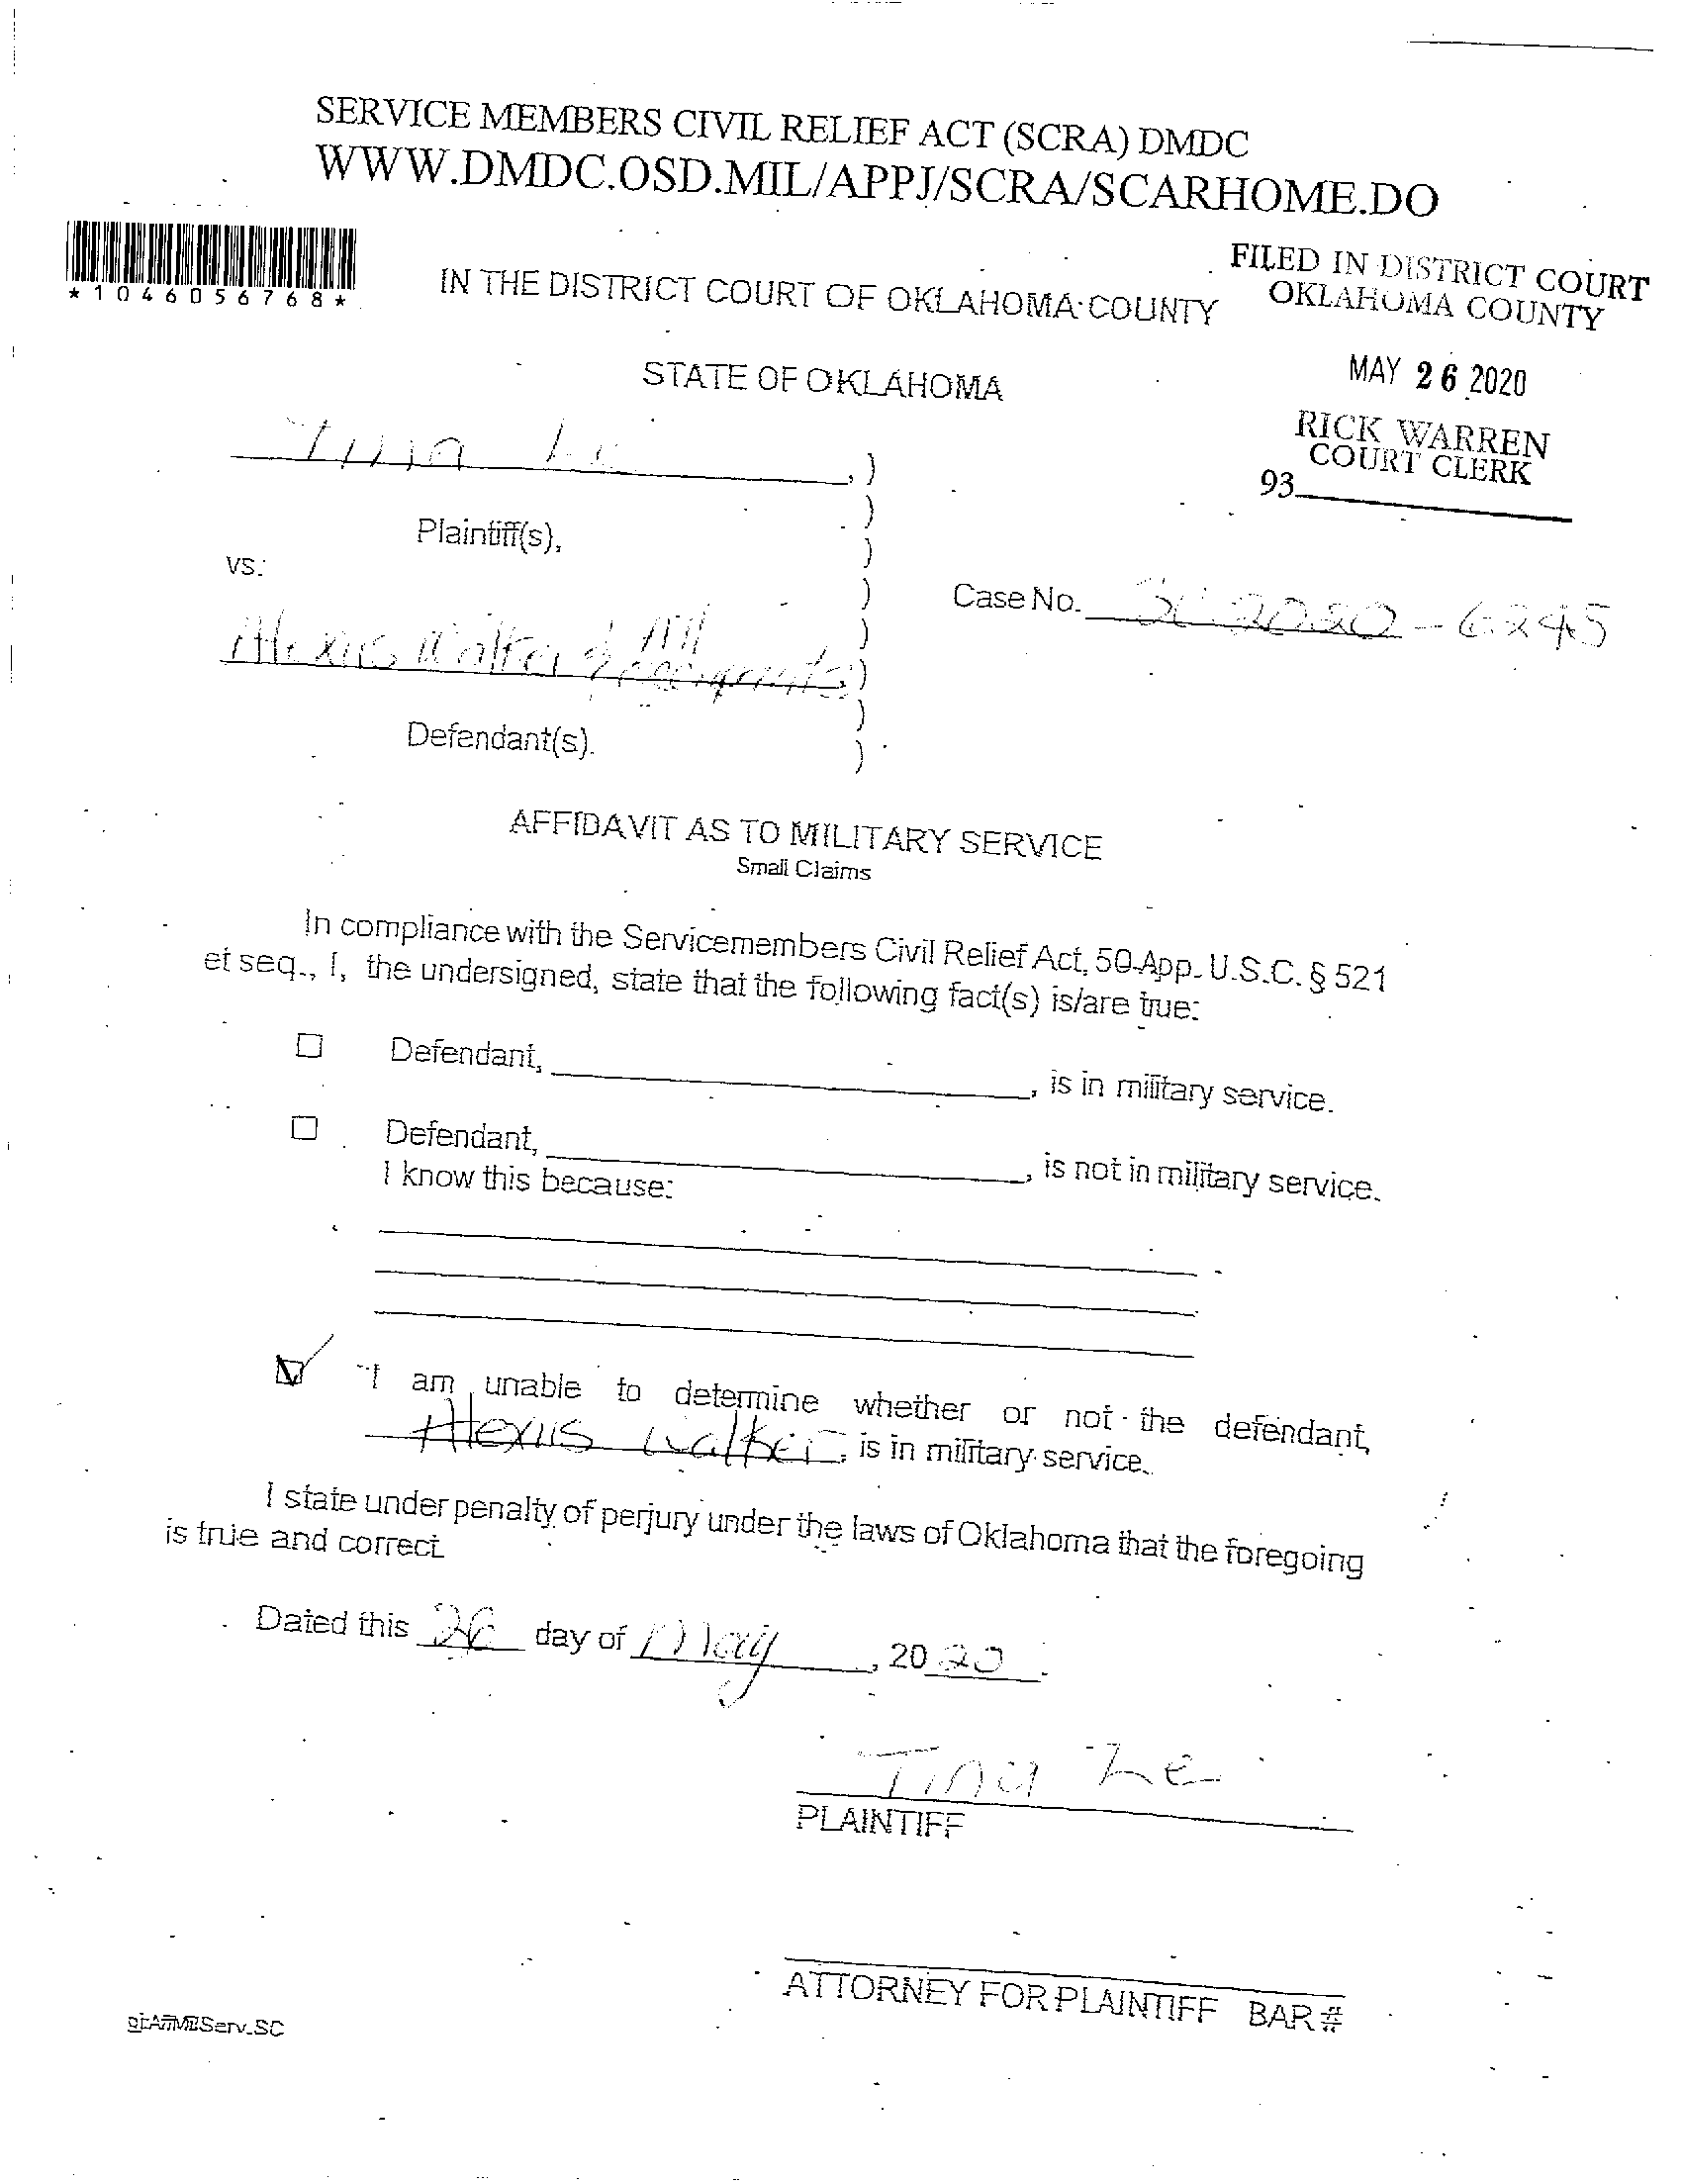 SERVICE MEMBERS CIVIL RELIEF ACT (SCRA) DMDC
WWW.DMDC.OSD.MIL/APPJ/SCRA/SCARHOME.DO
*1046056768*
IN THE DISTRICT COURT OF OKLAHOMA COUNTY
FILED IN DISTRICT COURT
OKLAHOMA COUNTY
STATE OF OKLAHOMA
MAY 26 2020
RICK WARREN
COURT CLERK
93
Tina Le,)
Plaintiff(s),
vs.
Case No. SC 2020-6245
Alexus Walker & All
occupants,)
Defendant(s).
AFFIDAVIT AS TO MILITARY SERVICE
Small Claims
In compliance with the Servicemembers Civil Relief Act, 50 App. U.S.C. § 521
et seq., I, the undersigned, state that the following fact(s) is/are true:
☐ Defendant, , is in military service.
☐ Defendant, , is not in military service.
I know this because:
☑ I am unable to determine whether or not the defendant,
Alexus Walker, is in military service.
I state under penalty of perjury under the laws of Oklahoma that the foregoing
is true and correct.
Dated this 26 day of May, 2020.
Tina Le
PLAINTIFF
ATTORNEY FOR PLAINTIFF BAR #